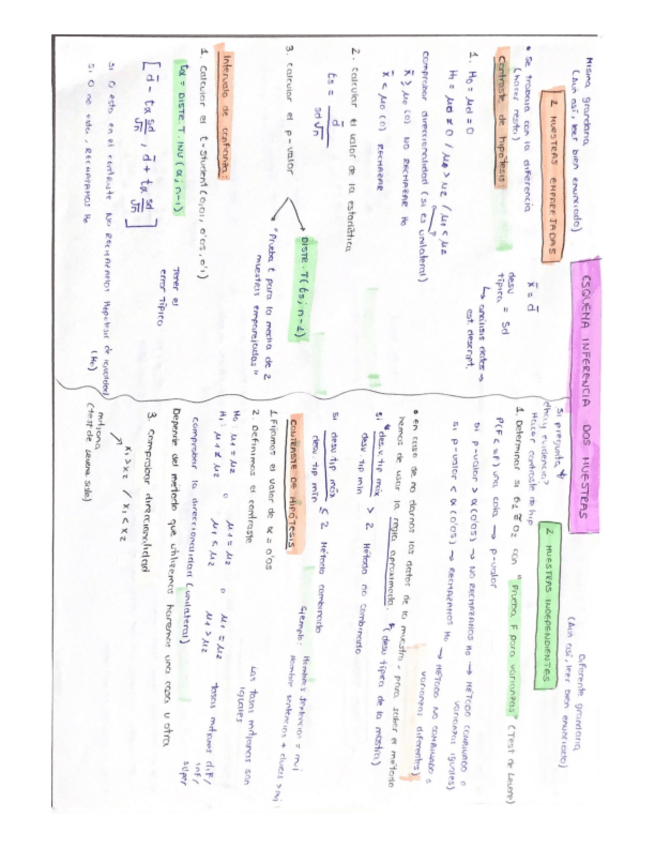 ESQUEMA INFERENCIA DOS MUESTRAS
Misma grandaria
(Aun así, leer bien enunciado)
2 MUESTRAS EMPAREJADAS
• Se trabaja con la diferencia
(hacer resta)
x̄ = d̄
desv típica = Sd
↳ análisis datos → est. descript.
Contraste de hipótesis
1. H₀ = μd = 0
H₁ = μd ≠ 0 / μ₁ > μ₂ / μ₁ < μ₂
comprobar direccionalidad (si es unilateral)
x̄ > μ₀ (0) NO RECHAZAR H₀
x̄ < μ₀ (0) RECHAZAR
2. Calcular el valor de la estadística
ts = d̄ / sd√n
3. Calcular el p-valor
DISTR.T(ts; n-1)
"Prueba t para la media de 2 muestras emparejadas"
Intervalo de confianza:
1. Calcular el t-student (0,01, 0'05, 0'1)
tα = DISTR.T.INV(α; n-1)
[d̄ - tα sd/√n , d̄ + tα sd/√n]
error típico
Si 0 está en el NO RECHAZAMOS Hipótesis de igualdad (H₀)
Si 0 no está, RECHAZAMOS H₀
Diferente grandaria
(Aun así, leer bien enunciado)
2 MUESTRAS INDEPENDIENTES
Si pregunta
¿hay evidencia?
Hacer contraste de hip
1. Determinar si con "Prueba F para varianzas" (Test de Levene)
una cola → p-valor
Si p-valor > α (0'05) → NO RECHAZAMOS H₀ → MÉTODO COMBINADO o varianzas iguales)
Si p-valor < α (0'05) → RECHAZAMOS H₀ → MÉTODO NO COMBINADO o varianzas diferentes)
• en caso de no darnos los datos de la muestra, para saber el método
hemos de usar la regla aproximada. (desv típica de la muestra)
Si desv. tip máx / desv. tip min > 2 Método no combinado
Si desv tip máx / desv. tip min ≤ 2 Método combinado
CONTRASTE DE HIPÓTESIS
Ejemplo:
1. Fijamos el valor de α = 0'05
2. Definimos el contraste
H₀: μ₁ = μ₂ o μ₁ = μ₂ o μ₁ = μ₂
H₁: μ₁ ≠ μ₂ μ₁ < μ₂ μ₁ > μ₂
Las tasas mitjanas son iguales
tasas mitjanas dif / inf / super
comprobar la direccionalidad (unilateral)
Depende del método que utilicemos haremos una cosa u otra
3. Comprobar direccionalidad
x₁ > x₂ / x₁ < x₂
mitjana
(test de Levene)